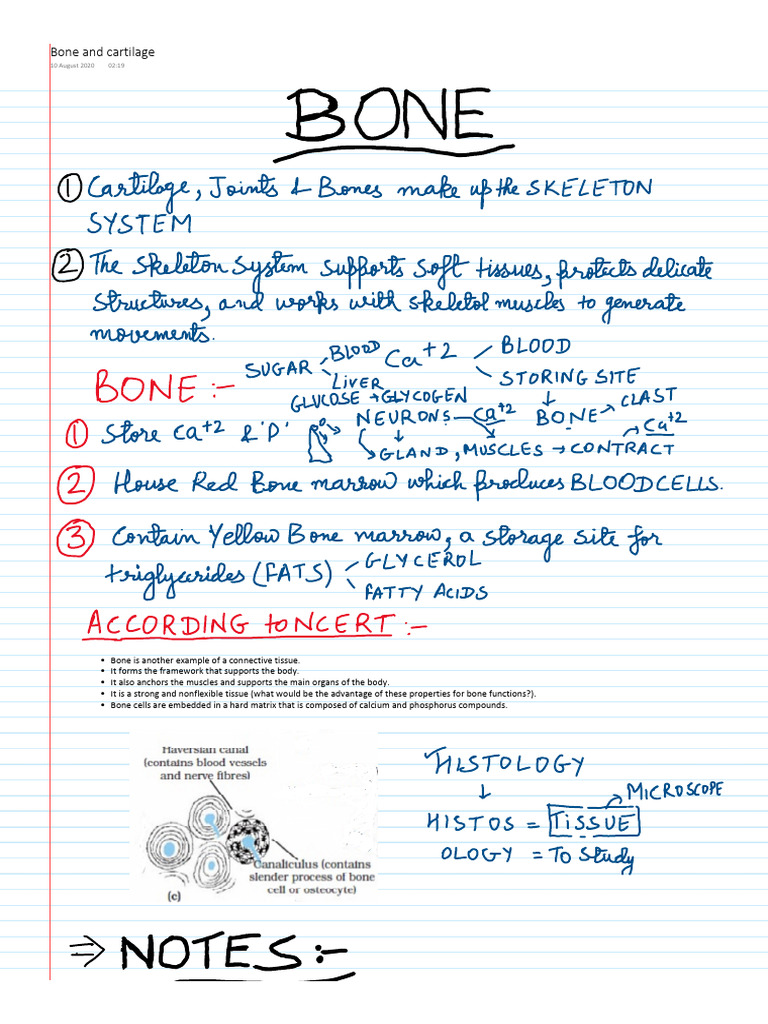 Bone and cartilage
10 August 2020 02:19
BONE
① Cartilage, Joints & Bones make up the SKELETON
SYSTEM
② The Skeleton System supports soft tissues, protects delicate
structures, and works with skeletal muscles to generate
movements.
BONE :-
SUGAR
BLOOD
LIVER
Ca+2
BLOOD
STORING SITE
GLUCOSE → GLYCOGEN
↓
NEURONS — Ca+2
BONE → CLAST
Ca+2
① Store Ca+2 & 'P'
↓
GLAND, MUSCLES → CONTRACT
② House Red Bone marrow which produces BLOOD CELLS.
③ Contain Yellow Bone marrow, a storage site for
triglycerides (FATS)
GLYCEROL
FATTY ACIDS
ACCORDING to NCERT :-
• Bone is another example of a connective tissue.
• It forms the framework that supports the body.
• It also anchors the muscles and supports the main organs of the body.
• It is a strong and nonflexible tissue (what would be the advantage of these properties for bone functions?).
• Bone cells are embedded in a hard matrix that is composed of calcium and phosphorus compounds.
Haversian canal
(contains blood vessels
and nerve fibres)
Canaliculus (contains
slender process of bone
cell or osteocyte)
(c)
HISTOLOGY
↓
MICROSCOPE
HISTOS = TISSUE
OLOGY = To Study
⇒ NOTES :-